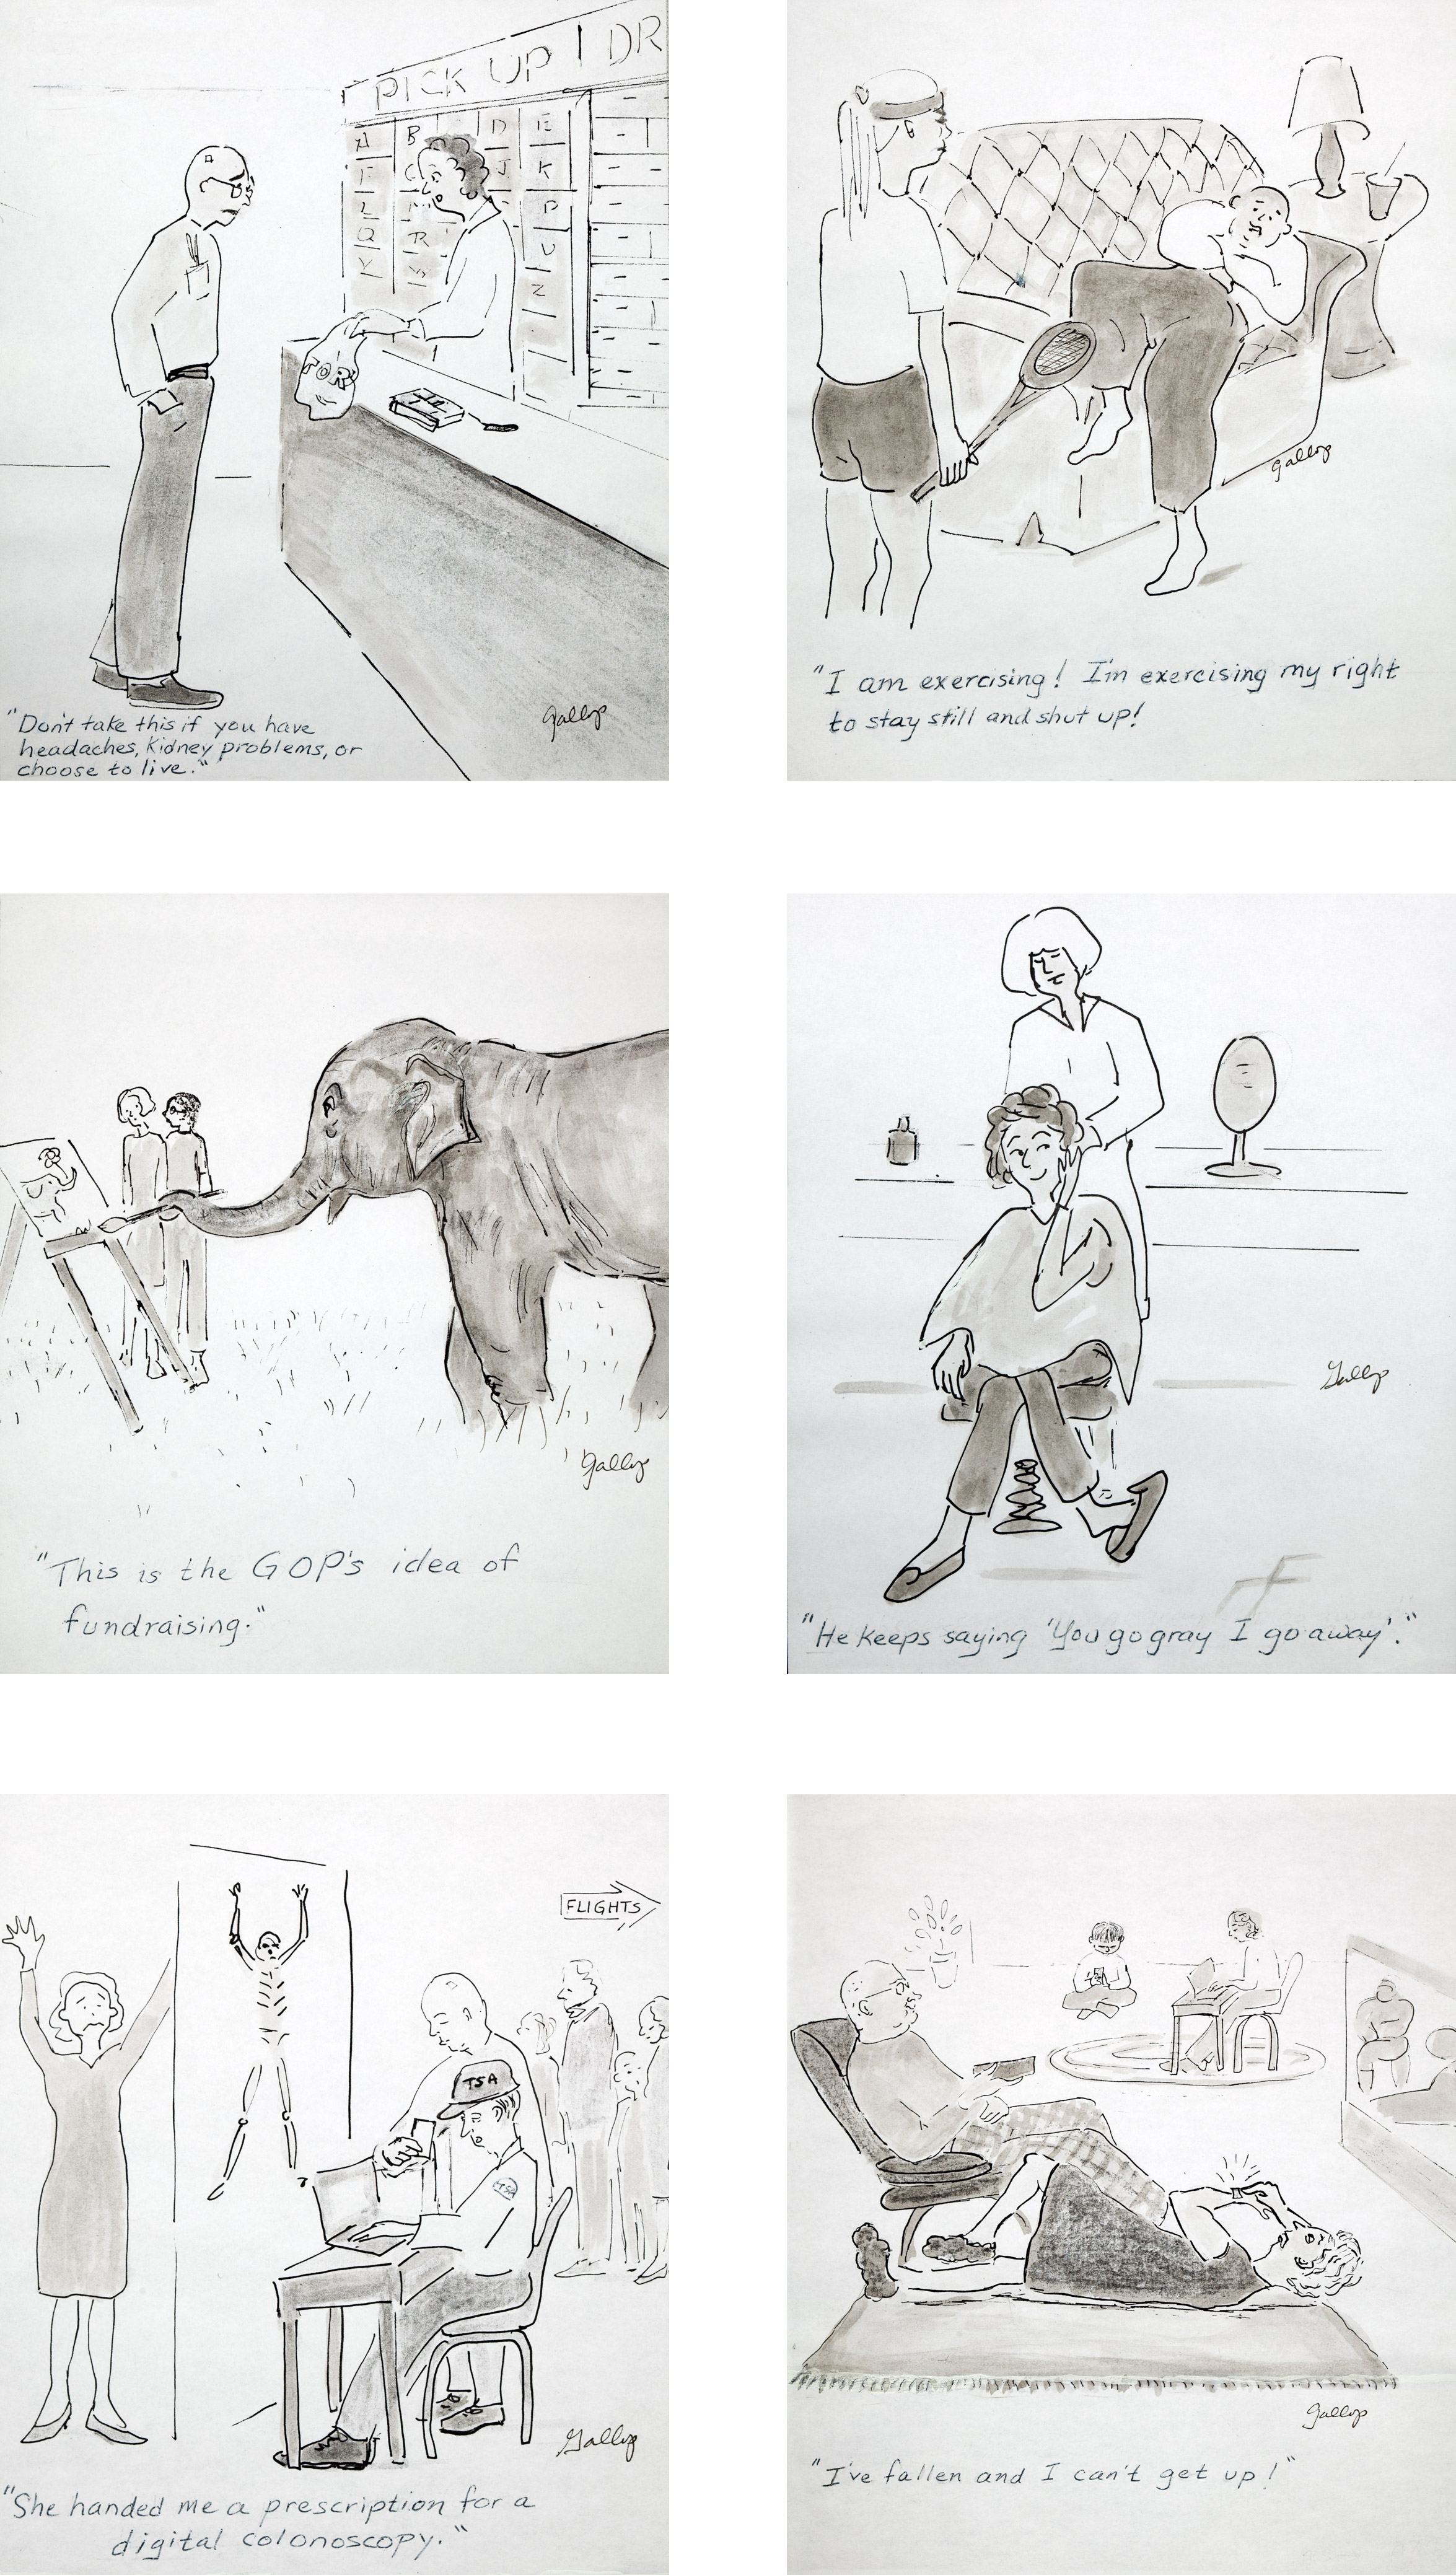 PICK UP | DR
A B D E
F J K
L P
Q R U
Z
TOR
gallop
"Don't take this if you have
headaches, kidney problems, or
choose to live."
gallop
"I am exercising! I'm exercising my right
to stay still and shut up!
gallop
"This is the GOP's idea of
fundraising."
Gallop
"He keeps saying 'You go gray I go away'."
FLIGHTS
TSA
TSA
Gallop
"She handed me a prescription for a
digital colonoscopy."
gallop
"I've fallen and I can't get up!"